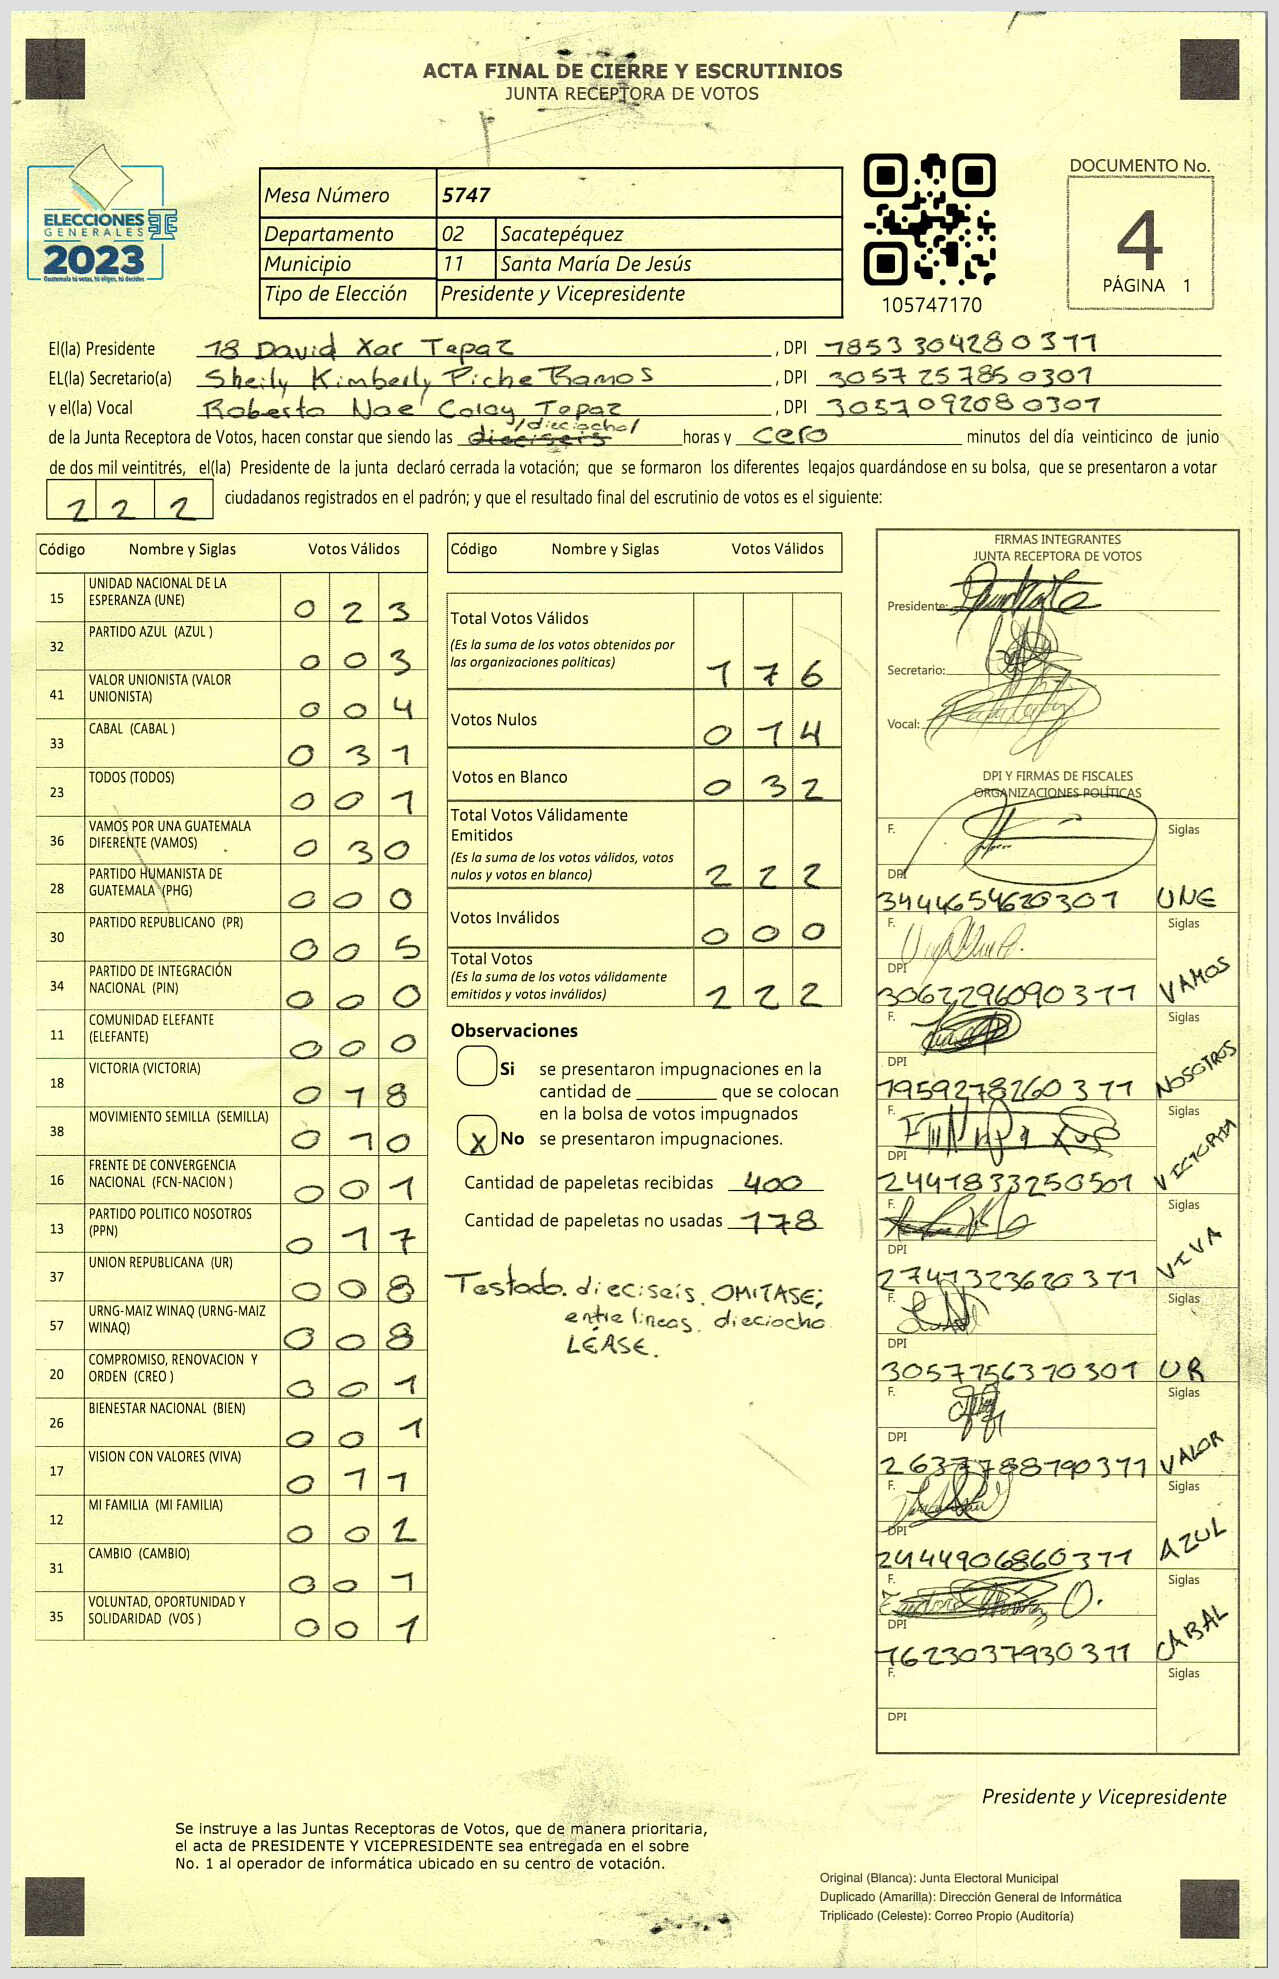 ACTA FINAL DE CIERRE Y ESCRUTINIOS
JUNTA RECEPTORA DE VOTOS
ELECCIONES
GENERALES
2023
Guatemala tú votas, tú eliges, tú decides
Mesa Número 5747
Departamento 02 Sacatepéquez
Municipio 11 Santa María De Jesús
Tipo de Elección Presidente y Vicepresidente
105747170
DOCUMENTO No.
4
PÁGINA 1
El(la) Presidente David Xar Tepaz , DPI 1853304280311
EL(la) Secretario(a) Sheily Kimberly Piche Ramos , DPI 3057257850301
y el(la) Vocal Roberto Noe Coloy Tepaz , DPI 3057092080301
/dieciocho/
de la Junta Receptora de Votos, hacen constar que siendo las dieciseis horas y cero minutos del día veinticinco de junio
de dos mil veintitrés, el(la) Presidente de la junta declaró cerrada la votación; que se formaron los diferentes legajos quardándose en su bolsa, que se presentaron a votar
2 2 2 ciudadanos registrados en el padrón; y que el resultado final del escrutinio de votos es el siguiente:
Código Nombre y Siglas Votos Válidos
15 UNIDAD NACIONAL DE LA
ESPERANZA (UNE) 0 2 3
32 PARTIDO AZUL (AZUL ) 0 0 3
41 VALOR UNIONISTA (VALOR
UNIONISTA) 0 0 4
33 CABAL (CABAL ) 0 3 1
23 TODOS (TODOS) 0 0 1
36 VAMOS POR UNA GUATEMALA
DIFERENTE (VAMOS) 0 3 0
28 PARTIDO HUMANISTA DE
GUATEMALA (PHG) 0 0 0
30 PARTIDO REPUBLICANO (PR) 0 0 5
34 PARTIDO DE INTEGRACIÓN
NACIONAL (PIN) 0 0 0
11 COMUNIDAD ELEFANTE
(ELEFANTE) 0 0 0
18 VICTORIA (VICTORIA) 0 1 8
38 MOVIMIENTO SEMILLA (SEMILLA) 0 1 0
16 FRENTE DE CONVERGENCIA
NACIONAL (FCN-NACION ) 0 0 1
13 PARTIDO POLITICO NOSOTROS
(PPN) 0 1 7
37 UNION REPUBLICANA (UR) 0 0 8
57 URNG-MAIZ WINAQ (URNG-MAIZ
WINAQ) 0 0 8
20 COMPROMISO, RENOVACION Y
ORDEN (CREO ) 0 0 1
26 BIENESTAR NACIONAL (BIEN) 0 0 1
17 VISION CON VALORES (VIVA) 0 1 1
12 MI FAMILIA (MI FAMILIA) 0 0 2
31 CAMBIO (CAMBIO) 0 0 1
35 VOLUNTAD, OPORTUNIDAD Y
SOLIDARIDAD (VOS ) 0 0 1
Código Nombre y Siglas Votos Válidos
Total Votos Válidos
(Es la suma de los votos obtenidos por
las organizaciones políticas) 1 7 6
Votos Nulos 0 1 4
Votos en Blanco 0 3 2
Total Votos Válidamente
Emitidos
(Es la suma de los votos válidos, votos
nulos y votos en blanco) 2 2 2
Votos Inválidos 0 0 0
Total Votos
(Es la suma de los votos válidamente
emitidos y votos inválidos) 2 2 2
Observaciones
Si se presentaron impugnaciones en la
cantidad de ________ que se colocan
en la bolsa de votos impugnados
X No se presentaron impugnaciones.
Cantidad de papeletas recibidas 400
Cantidad de papeletas no usadas 178
Testado. dieciseis. OMITASE;
entre lineas. dieciocho
LÉASE.
FIRMAS INTEGRANTES
JUNTA RECEPTORA DE VOTOS
Presidente:
Secretario:
Vocal:
DPI Y FIRMAS DE FISCALES
ORGANIZACIONES POLÍTICAS
F. Siglas
DPI
3444654620301 UNE
F. Siglas
DPI
3062296090311 VAMOS
F. Siglas
DPI
1959278260311 NOSOTROS
F. Siglas
DPI
2441833250501 VICTORIA
F. Siglas
DPI
2741323620311 VIVA
F. Siglas
DPI
3057756370301 UR
F. Siglas
DPI
2637788790311 VALOR
F. Siglas
DPI
2444906860311 AZUL
F. Siglas
DPI
1623037930311 CABAL
F. Siglas
DPI
Presidente y Vicepresidente
Se instruye a las Juntas Receptoras de Votos, que de manera prioritaria,
el acta de PRESIDENTE Y VICEPRESIDENTE sea entregada en el sobre
No. 1 al operador de informática ubicado en su centro de votación.
Original (Blanca): Junta Electoral Municipal
Duplicado (Amarilla): Dirección General de Informática
Triplicado (Celeste): Correo Propio (Auditoría)